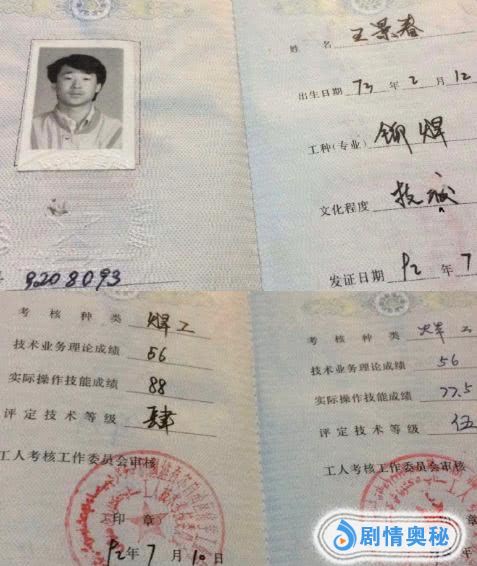 姓名 王景春
出生日期 73 年 2 月 12
工种(专业) 铆焊
文化程度 技
发证日期 92 年 7
9208093
考核种类 焊工
技术业务理论成绩 56
实际操作技能成绩 88
评定技术等级 肆
工人考核工作委员会审核
(印章)
92 年 7 月 10 日
考核种类 焊工
技术业务理论成绩 56
实际操作技能成绩 77.5
评定技术等级 伍
工人考核工作委员会审核
剧情奥秘